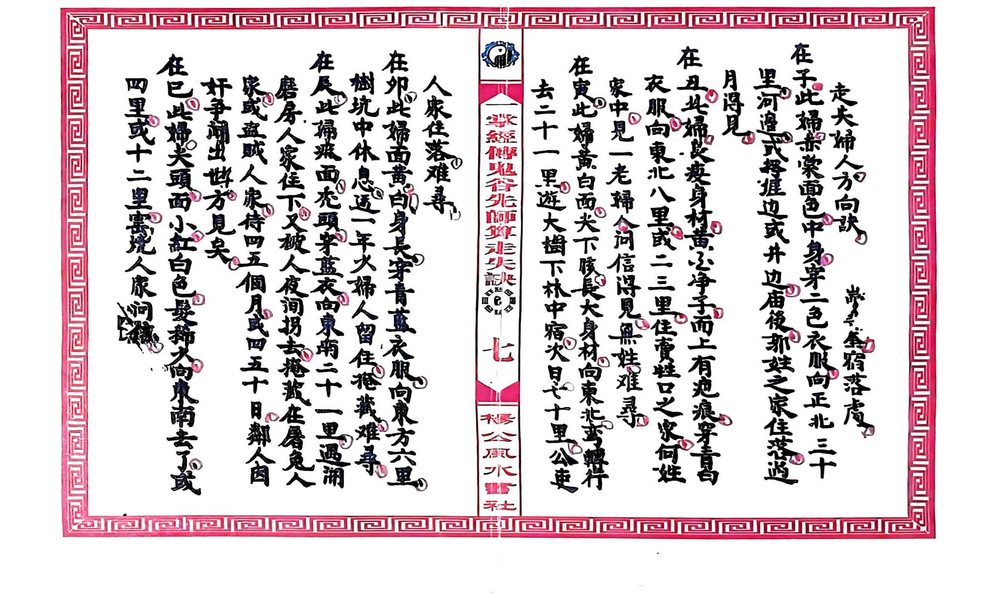 走失婦人方向訣
宿落處
在子此婦朵裳面色中身穿二色衣服向正北三十
里河邊或樹掋边或井边庙後郭姓之家住落尚
月得見
在丑此婦長瘦身材黃白净子面上有疤痕穿青白
衣服向東北八里或二三里住賣牲口之家何姓
家中見一老婦人问信得見無姓难尋
在寅此婦黃白面尖下胲長大身材向東北弯轉行
去二十一里遊大樹下林中宿次日六十里公吏
人家住落难尋
在卯此婦面黃白身長穿青藍衣服向東方六里
樹坑中休息送一年火婦人留住掩藏难尋
在辰此婦疤面禿頭穿藍衣向東南二十一里過闹
磨房人家住下又被人夜间拐去掩藏在屠兔人
家或盗贼人家待四五個月或四五十日鄰人因
奸爭闹出世方見矣
在巳此婦尖頭面小紅白色髮稀大向東南去了或
四里或十二里窑燒人家问
一掌經傳鬼谷先師算走失訣
七
楊公風水書社